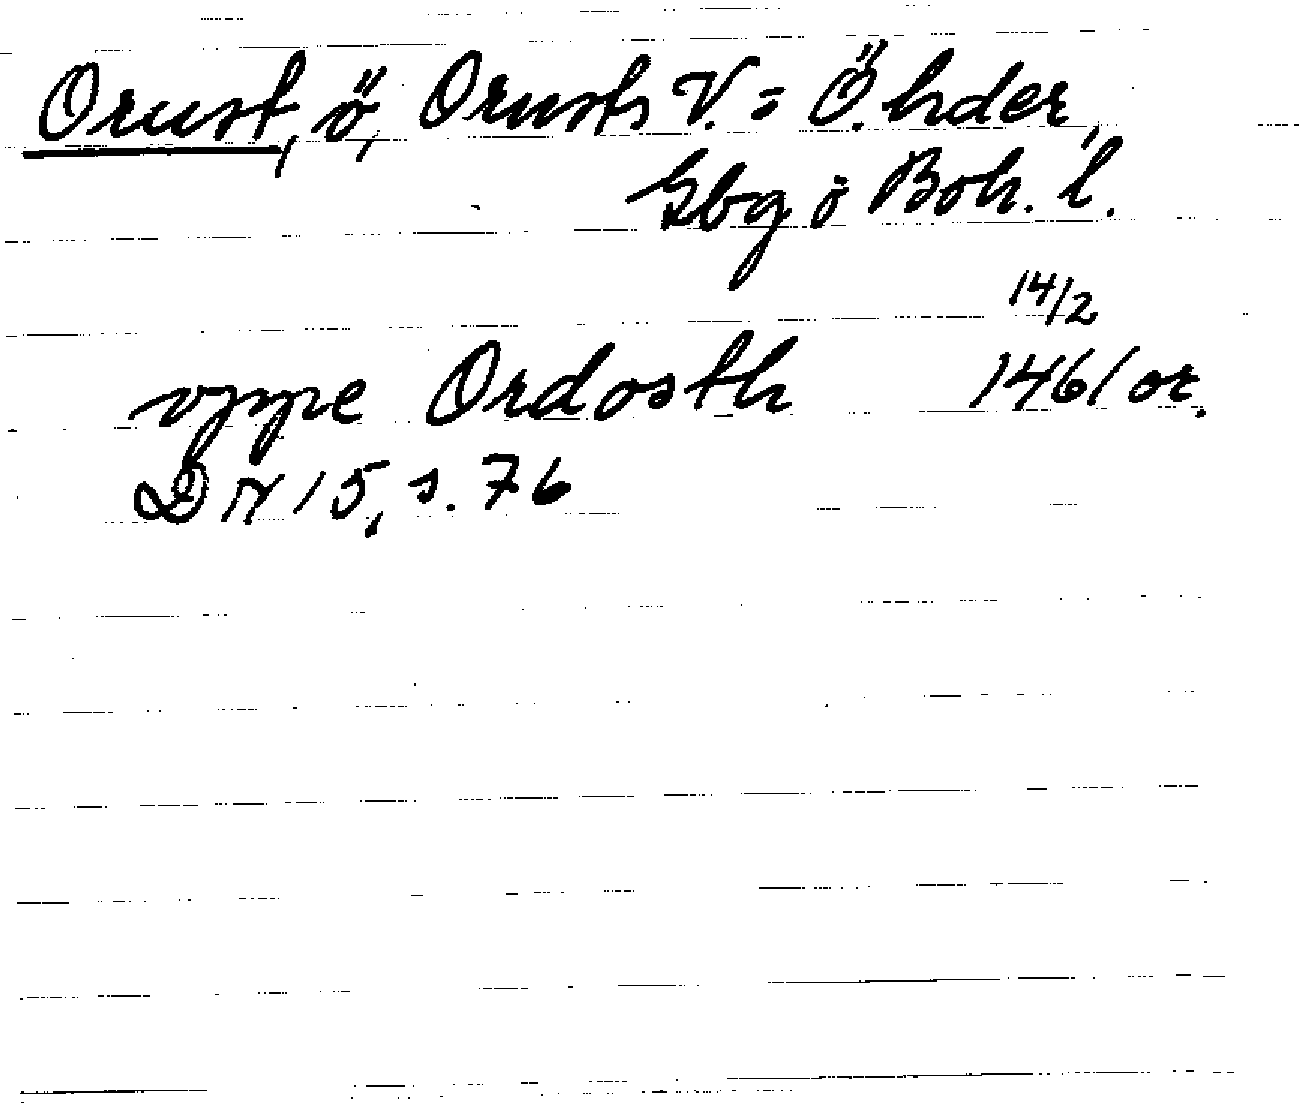 Orust, ö, Orusts V. = Ö. hder,
Gbg o Boh. l.
14/2
vppe Ordosth 1461 or.
DN 15, s. 76